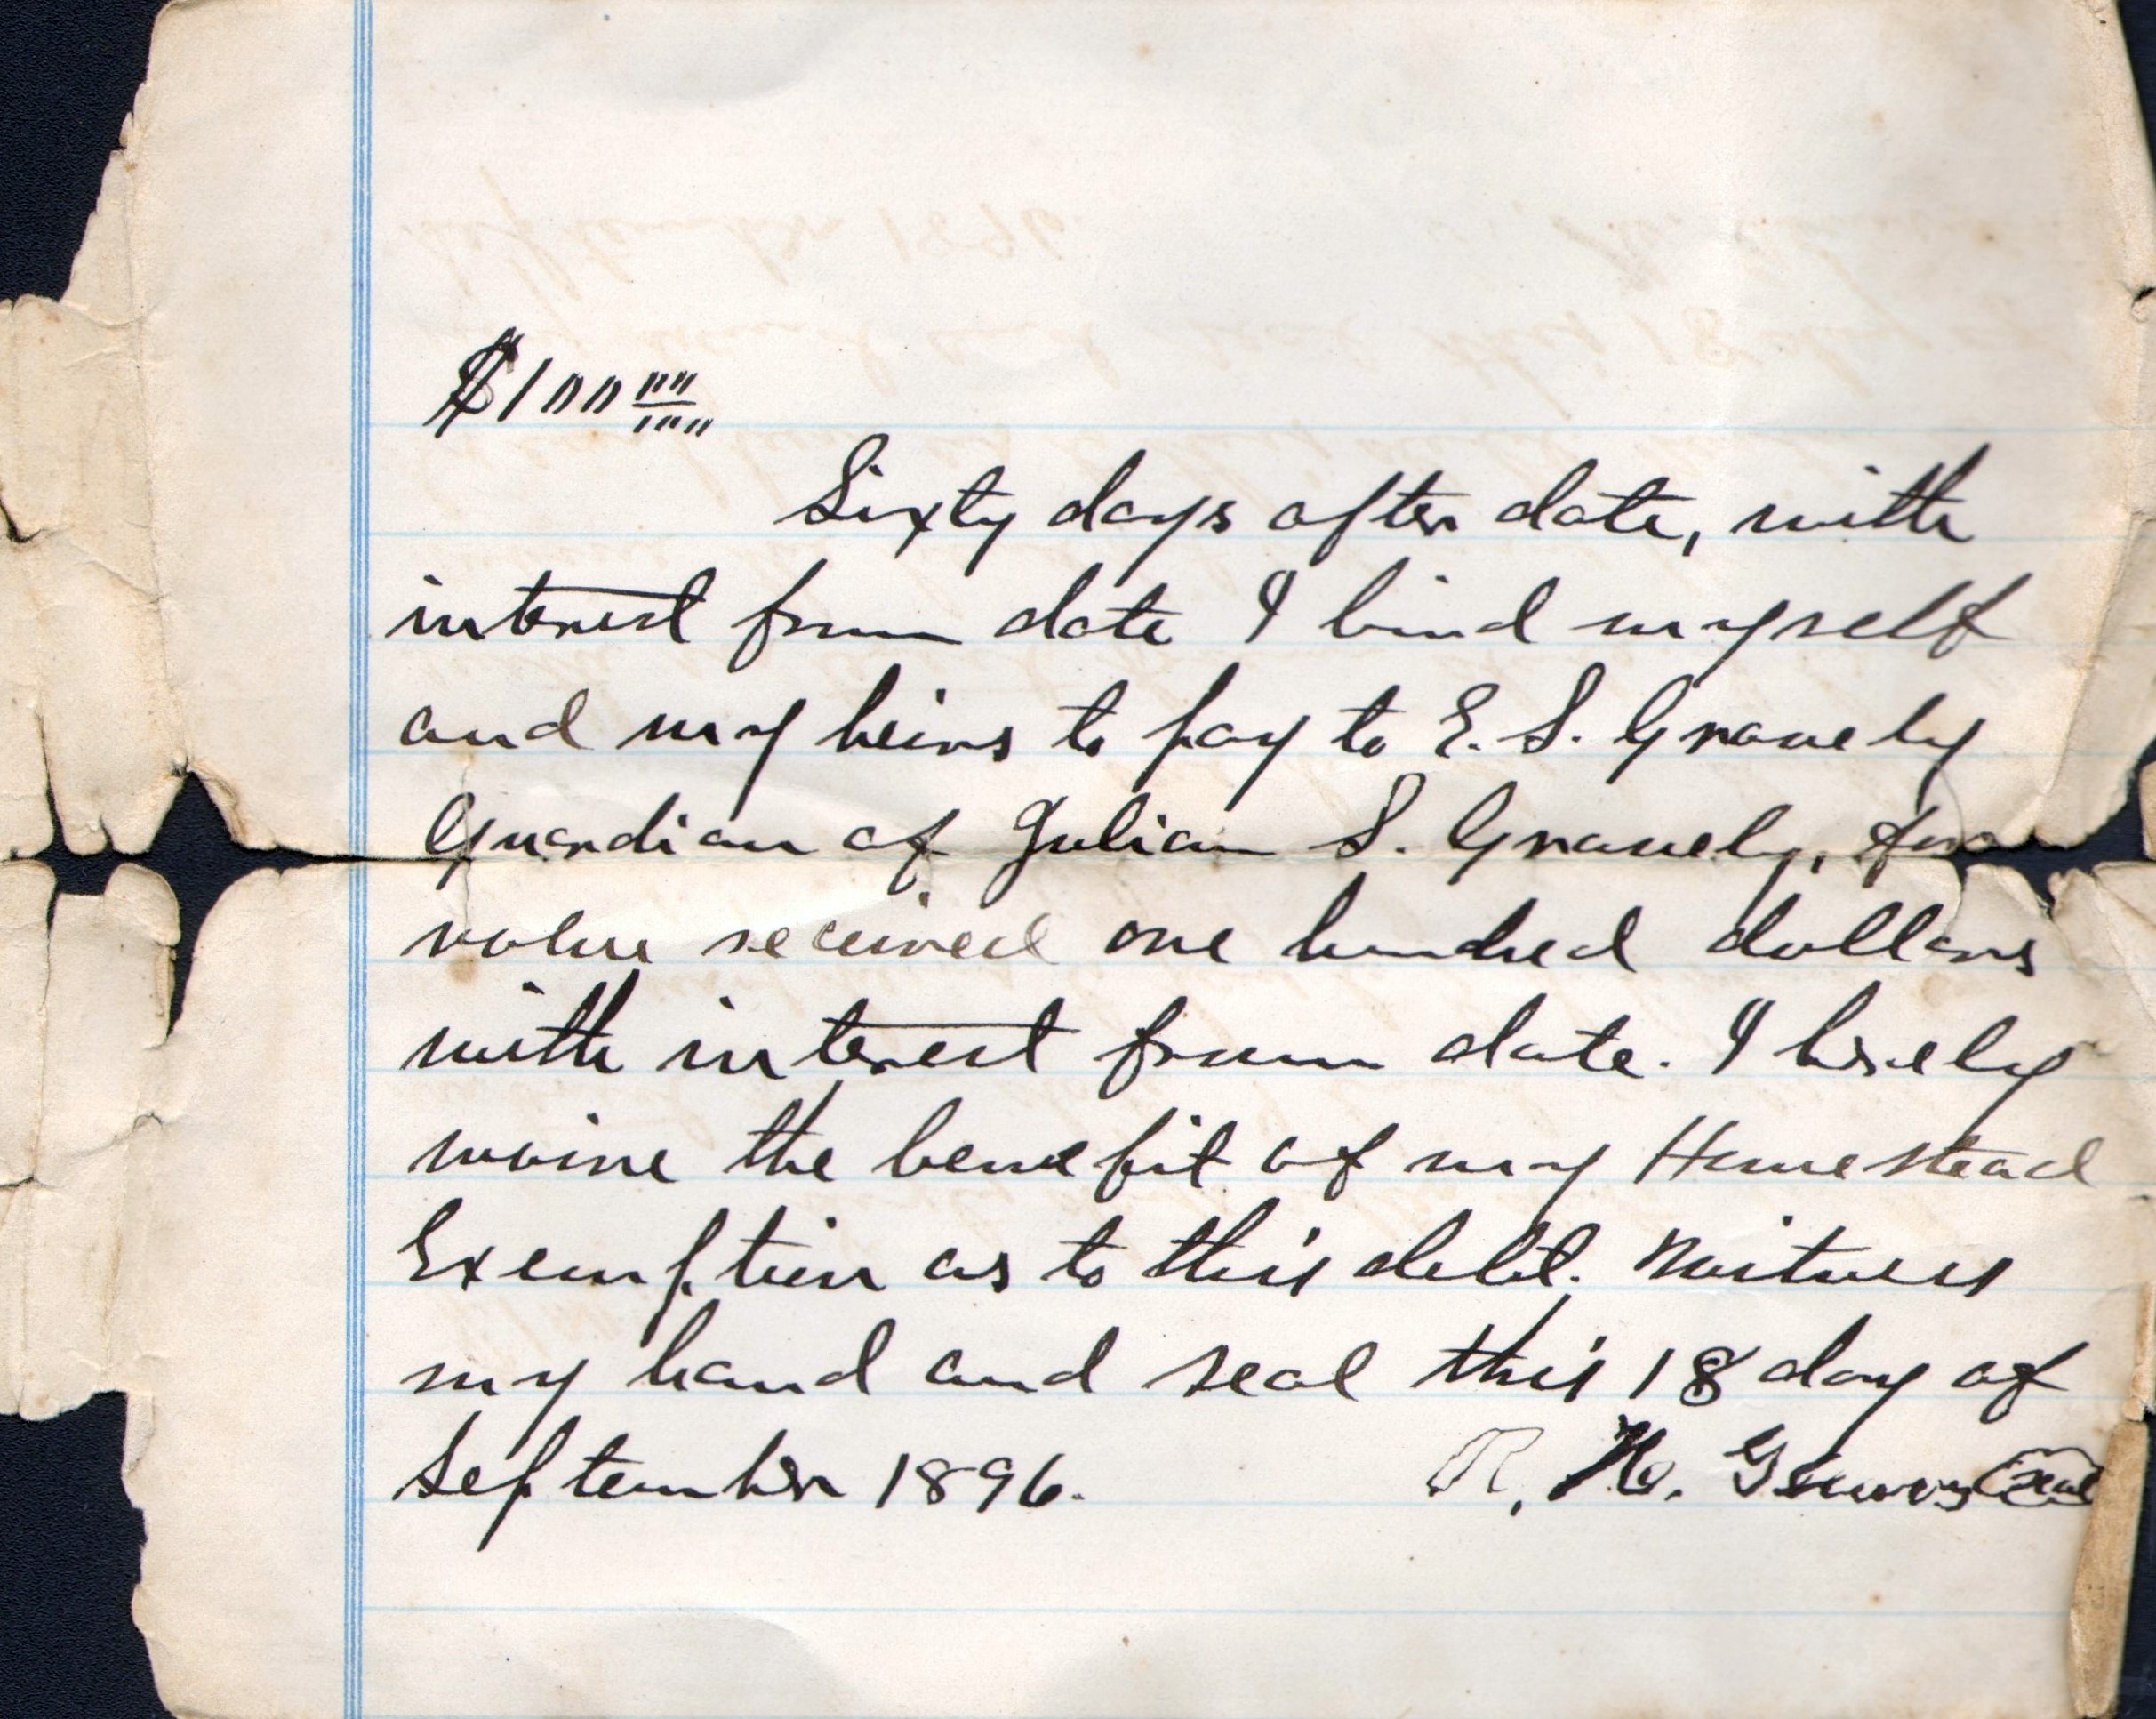 $100 00/100
Sixty days after date, with
interest from date I bind myself
and my heirs to pay to E. S. Gravely
Guardian of Julian S. Gravely, for
value received one hundred dollars
with interest from date. I hereby
waive the benefit of my Homestead
Exemption as to this debt. Witness
my hand and seal this 18 day of
September 1896. R. H. (seal